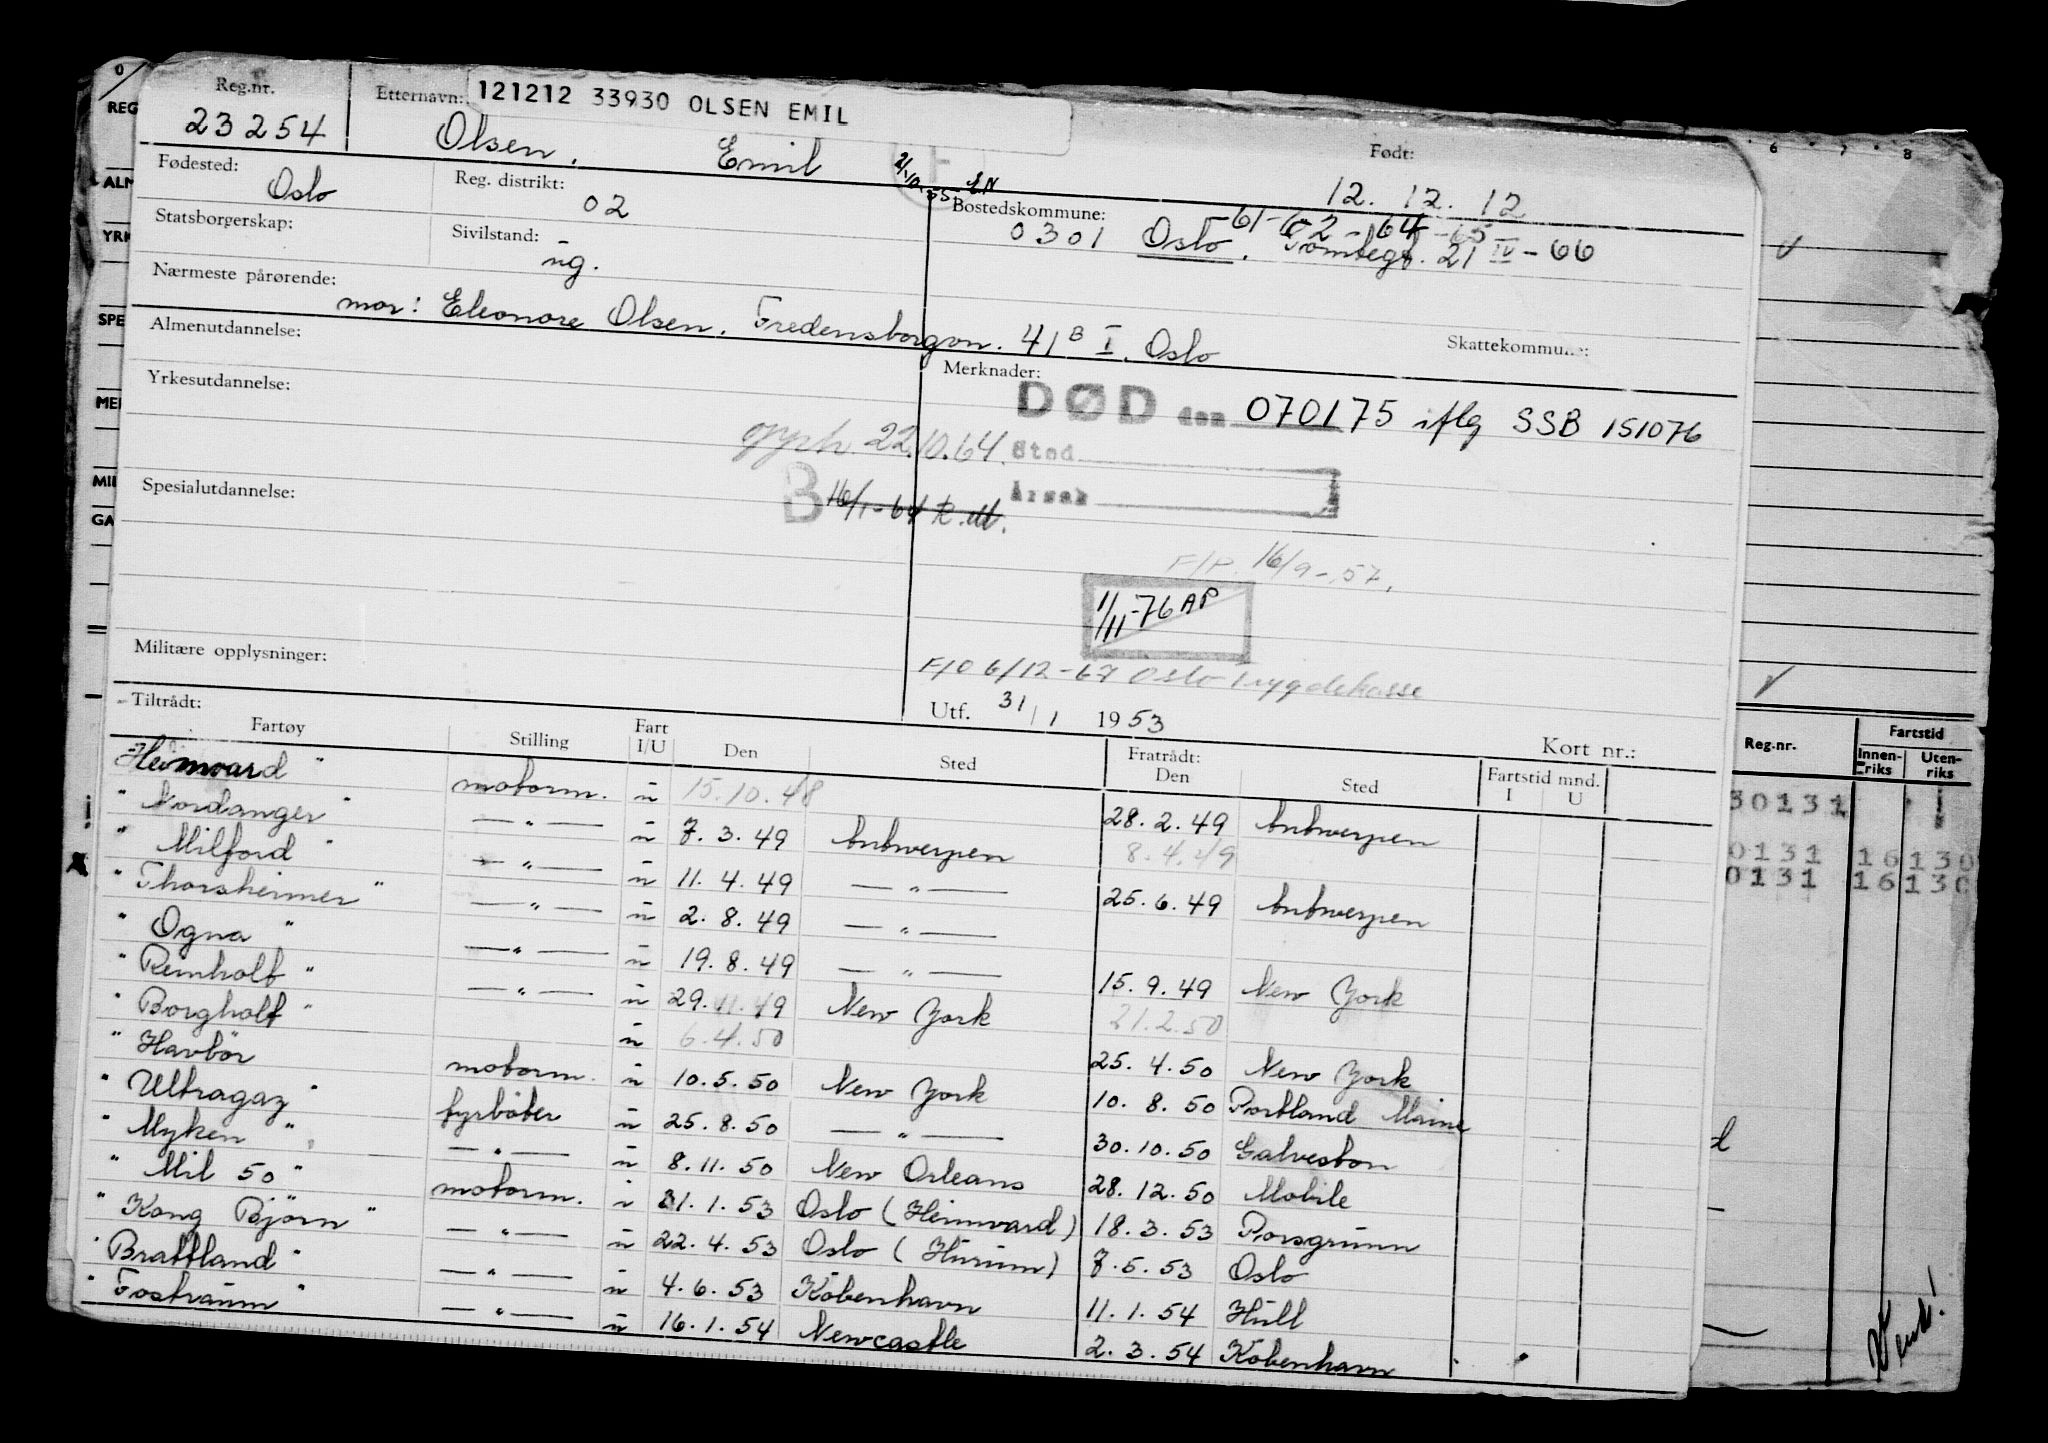 Reg.nr. Etternavn: 121212 33930 OLSEN EMIL
23254 Olsen, Emil Født:
12. 12. 12
Fødested: Oslo Reg. distrikt: 02
Bostedskommune: 0301 Oslo.
-61-62-64-65
21 IV-66
Statsborgerskap: Sivilstand: ug.
Nærmeste pårørende:
mor: Eleonore Olsen, Fredensborgvn. 41 B I, Oslo
Skattekommune:
Almenutdannelse:
Merknader:
DØD den 070175 iflg SSB 151076
Yrkesutdannelse:
opph. 22.10.64. Sted
Årsak
B 16/1-64
Spesialutdannelse:
F/P. 16/9-57.
1/11-76 AP
Militære opplysninger:
F/O 6/12-67 Oslo Trygdekasse
Utf. 31/1 1953
Tiltrådt: Kort nr.:
Fartøy Stilling Fart I/U Den Sted Fratrådt: Den Sted Fartstid mnd. I U
Heimvard " motorm. u 15.10.48 28.2.49 Antwerpen
" Nordanger " — " — u 7.3.49 Antwerpen 8.4.49
" Milford " — " — u 11.4.49 — " — 25.6.49 Antwerpen
" Thorsheimer " — " — u 2.8.49 — " —
" Ogna " — " — u 19.8.49 — " — 15.9.49 New York
" Reinholt " — " — u 29.11.49 New York 21.2.50
" Borgholt " u 6.4.50 25.4.50 New York
" Havbör motorm. u 10.5.50 New York 10.8.50 Portland Maine
" Ultragaz " fyrböter u 25.8.50 — " — 30.10.50 Galveston
" Myken " — " — u 8.11.50 New Orleans 28.12.50 Mobile
" Mil 50 " motorm. i 31.1.53 Oslo (Heimvard) 18.3.53 Porsgrunn
" Kong Björn " — " — u 22.4.53 Oslo (Hurum) 7.5.53 Oslo
" Brattland " — " — u 4.6.53 København 11.1.54 Hull
" Fostraum " — " — u 16.1.54 Newcastle 2.3.54 København
0
REG
ALM
YRK
SPE
MER
MIL
GA
6 7 8
Reg.nr. Fartstid
Innen-riks Uten-riks
30131
0131 16 130
0131 16 130
d